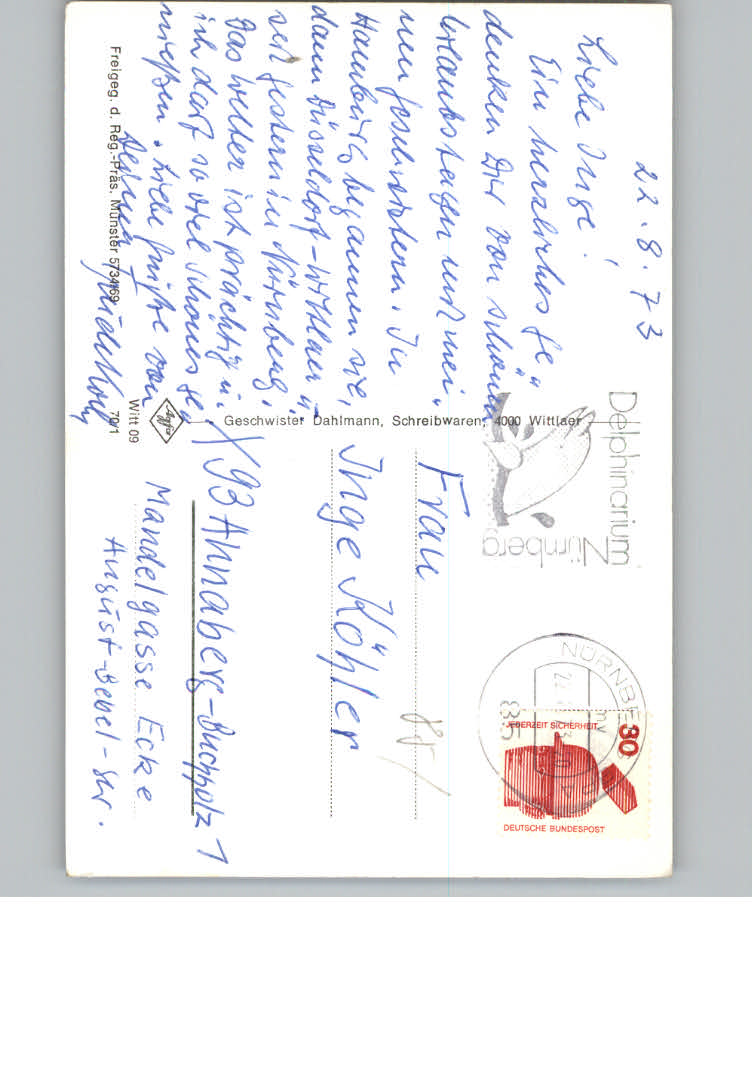 22.8.73
Liebe Inge!
Ein herzliches Ge„
denken Dir von schönen
Urlaubstagen mit mei„
nen Geschwistern. In
Hamburg begannen sie,
dann Düsseldorf-Wittlaer u.
seit gestern in Nürnberg.
Das Wetter ist prächtig u.
ich darf so viel Schönes ge„
nießen. Liebe Grüße von
Deiner
Freigeg. d. Reg.-Präs. Münster 5734/69
Witt 09
70/1
Agfa
Geschwister Dahlmann, Schreibwaren, 4000 Wittlaer
Delphinarium
Nürnberg
NÜRNBE
85
JEDERZEIT SICHERHEIT
30
DEUTSCHE BUNDESPOST
Frau
Inge Köhler
X 93 Annaberg-Buchholz 1
Mandelgasse Ecke
August-Bebel-Str.